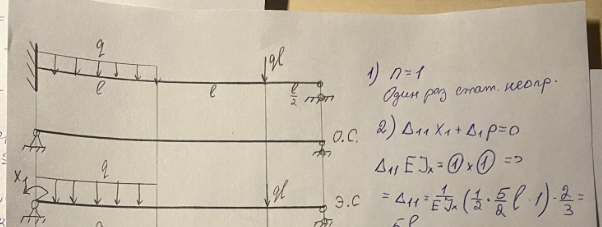 q
ql
l
l
l/2
1) n=1
Один раз стат. неопр.
О.С.
2) Δ₁₁ X₁ + Δ₁P = 0
Δ₁₁ EJₓ = ① × ① =>
X₁
q
ql
Э.С
= Δ₁₁ = 1/EJₓ (1/2 · 5/2 l · 1) · 2/3 =
5l